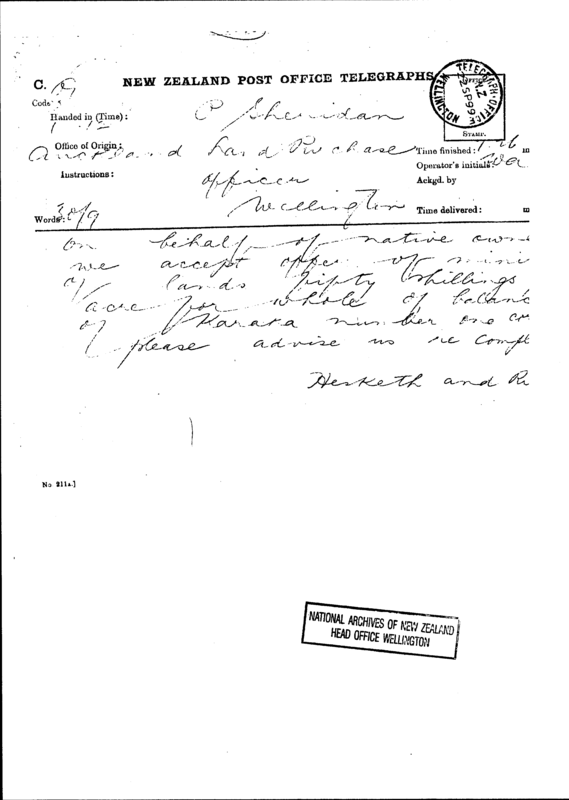 C.
NEW ZEALAND POST OFFICE TELEGRAPHS
Code
Handed in (Time):
P Sheridan
TELEGRAPH-OFFICE
WELLINGTON
N.Z
22 SP 99
STAMP.
Office of Origin:
Auckland Land Purchase
Time finished: m
Operator's initials:
Instructions:
officer
Ackgd. by
Wellington
Time delivered: m
Words:
On behalf of native own
we accept offer of mini
of lands fifty shillings
acre for whole of balanc
of Karaka number one
please advise us re compl
Hesketh and Ri
No 211A.]
NATIONAL ARCHIVES OF NEW ZEALAND
HEAD OFFICE WELLINGTON